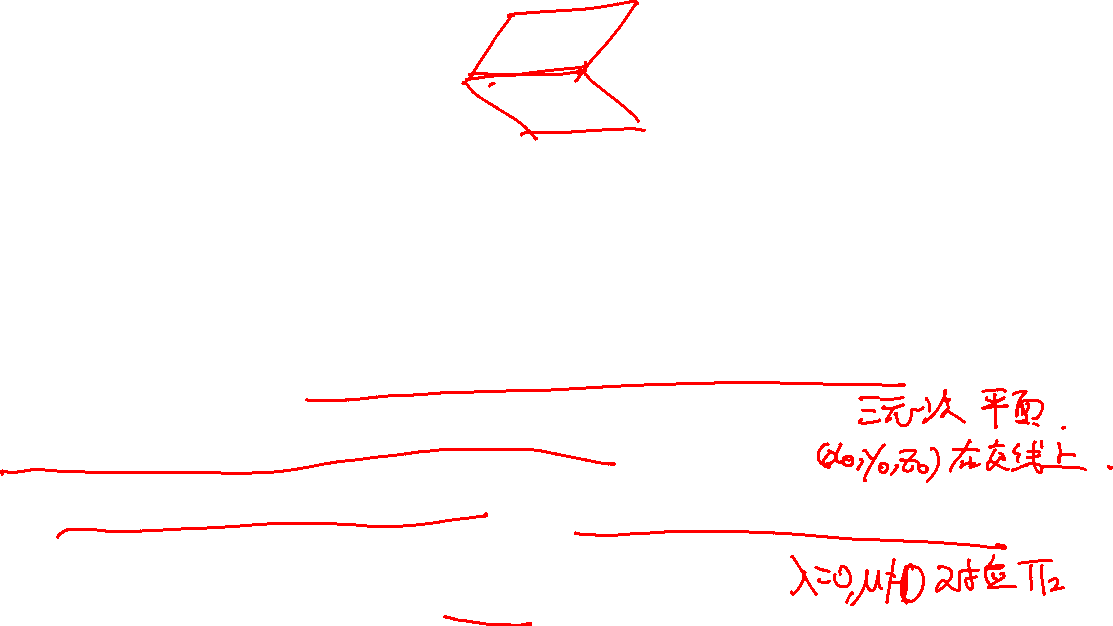 三元一次 平面.
(x₀,y₀,z₀)在交线上.
λ=0,μ≠0 对应 π₂